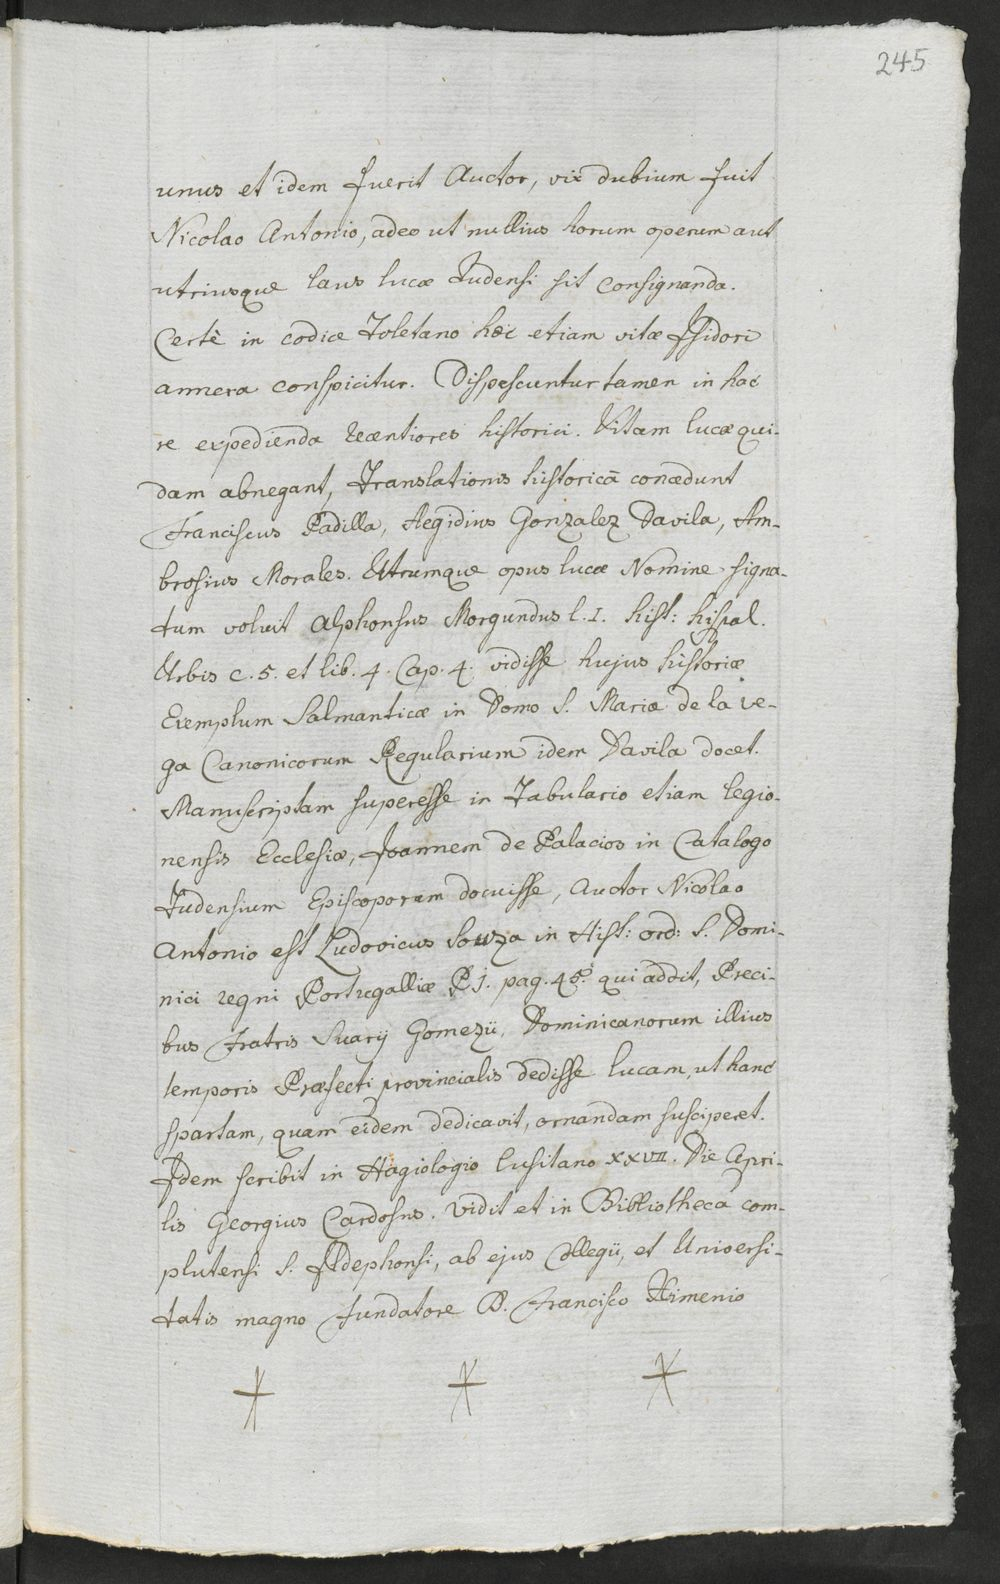 245
unus et idem fuerit Auctor, vix dubium fuit
Nicolao Antonio, adeo ut nullius horum operum aut
utriusque laus lucæ Tudensi sit consignanda.
Certè in codice Toletano hæc etiam vitæ Isidori
annexa conspicitur. Dispescuntur tamen in hac
re expedienda recentiores historici. Vitam lucæ qui-
dam abnegant, Translationis historicā concedunt
Franciscus Padilla, Aegidius Gonzalez Davila, Am-
brosius Morales. Utrumque opus lucæ Nomine signa-
tum voluit Alphonsus Morgundus l.I. hist: hispal.
Urbis c.5. et lib. 4. Cap. 4. vidisse hujus historiæ
Exemplum Salmanticæ in Domo S. Mariæ de la ve-
ga Canonicorum Regularium idem Davila docet.
Manuscriptam superesse in Tabulario etiam legio-
nensis Ecclesiæ, Joannem de Palacios in Catalogo
Tudensium Episcoporum docuisse, Auctor Nicolao
Antonio est Ludovicus Souza in Hist: ord: S. Domi-
nici regni Portugalliæ P.I. pag. 48. qui addit, Preci-
bus Fratris Suarij Gomezii, Dominicanorum illius
temporis Præfecti provincialis dedisse lucam, ut hanc
spartam, quam eidem dedicavit, ornandam susciperet.
Idem scribit in Hagiologio lusitano XXVII. Die Apri-
lis Georgius Cardosus. Vidit et in Bibliotheca com-
plutensi S. Ildephonsi, ab ejus Collegii, et Universi-
tatis magno Fundatore B. Francisco Ximenio